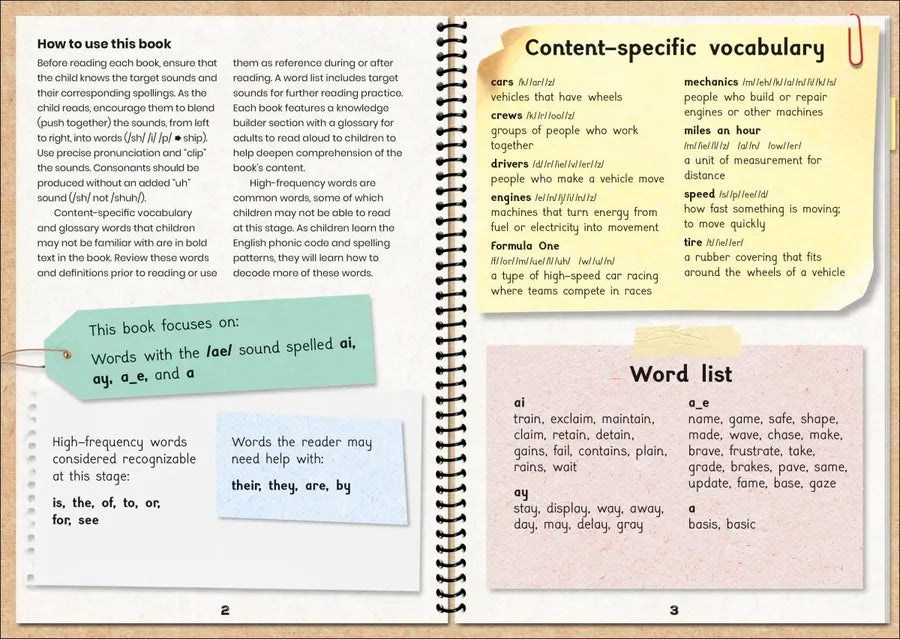 How to use this book
Before reading each book, ensure that
the child knows the target sounds and
their corresponding spellings. As the
child reads, encourage them to blend
(push together) the sounds, from left
to right, into words (/sh/ /i/ /p/ ➨ ship).
Use precise pronunciation and "clip"
the sounds. Consonants should be
produced without an added "uh"
sound (/sh/ not /shuh/).
Content-specific vocabulary
and glossary words that children
may not be familiar with are in bold
text in the book. Review these words
and definitions prior to reading or use
them as reference during or after
reading. A word list includes target
sounds for further reading practice.
Each book features a knowledge
builder section with a glossary for
adults to read aloud to children to
help deepen comprehension of the
book's content.
High-frequency words are
common words, some of which
children may not be able to read
at this stage. As children learn the
English phonic code and spelling
patterns, they will learn how to
decode more of these words.
This book focuses on:
Words with the /ae/ sound spelled ai,
ay, a_e, and a
High-frequency words
considered recognizable
at this stage:
is, the, of, to, or,
for, see
Words the reader may
need help with:
their, they, are, by
2
Content-specific vocabulary
cars /k/ar/z/
vehicles that have wheels
crews /k/r/oo/z/
groups of people who work
together
drivers /d/r/ie/v/er/z/
people who make a vehicle move
engines /e/n/j/i/n/z/
machines that turn energy from
fuel or electricity into movement
Formula One
/f/or/m/ue/l/uh/ /w/u/n/
a type of high-speed car racing
where teams compete in races
mechanics /m/eh/k/a/n/i/k/s/
people who build or repair
engines or other machines
miles an hour
/m/ie/l/z/ /a/n/ /ow/er/
a unit of measurement for
distance
speed /s/p/ee/d/
how fast something is moving;
to move quickly
tire /t/ie/er/
a rubber covering that fits
around the wheels of a vehicle
Word list
ai
train, exclaim, maintain,
claim, retain, detain,
gains, fail, contains, plain,
rains, wait
ay
stay, display, way, away,
day, may, delay, gray
a_e
name, game, safe, shape,
made, wave, chase, make,
brave, frustrate, take,
grade, brakes, pave, same,
update, fame, base, gaze
a
basis, basic
3